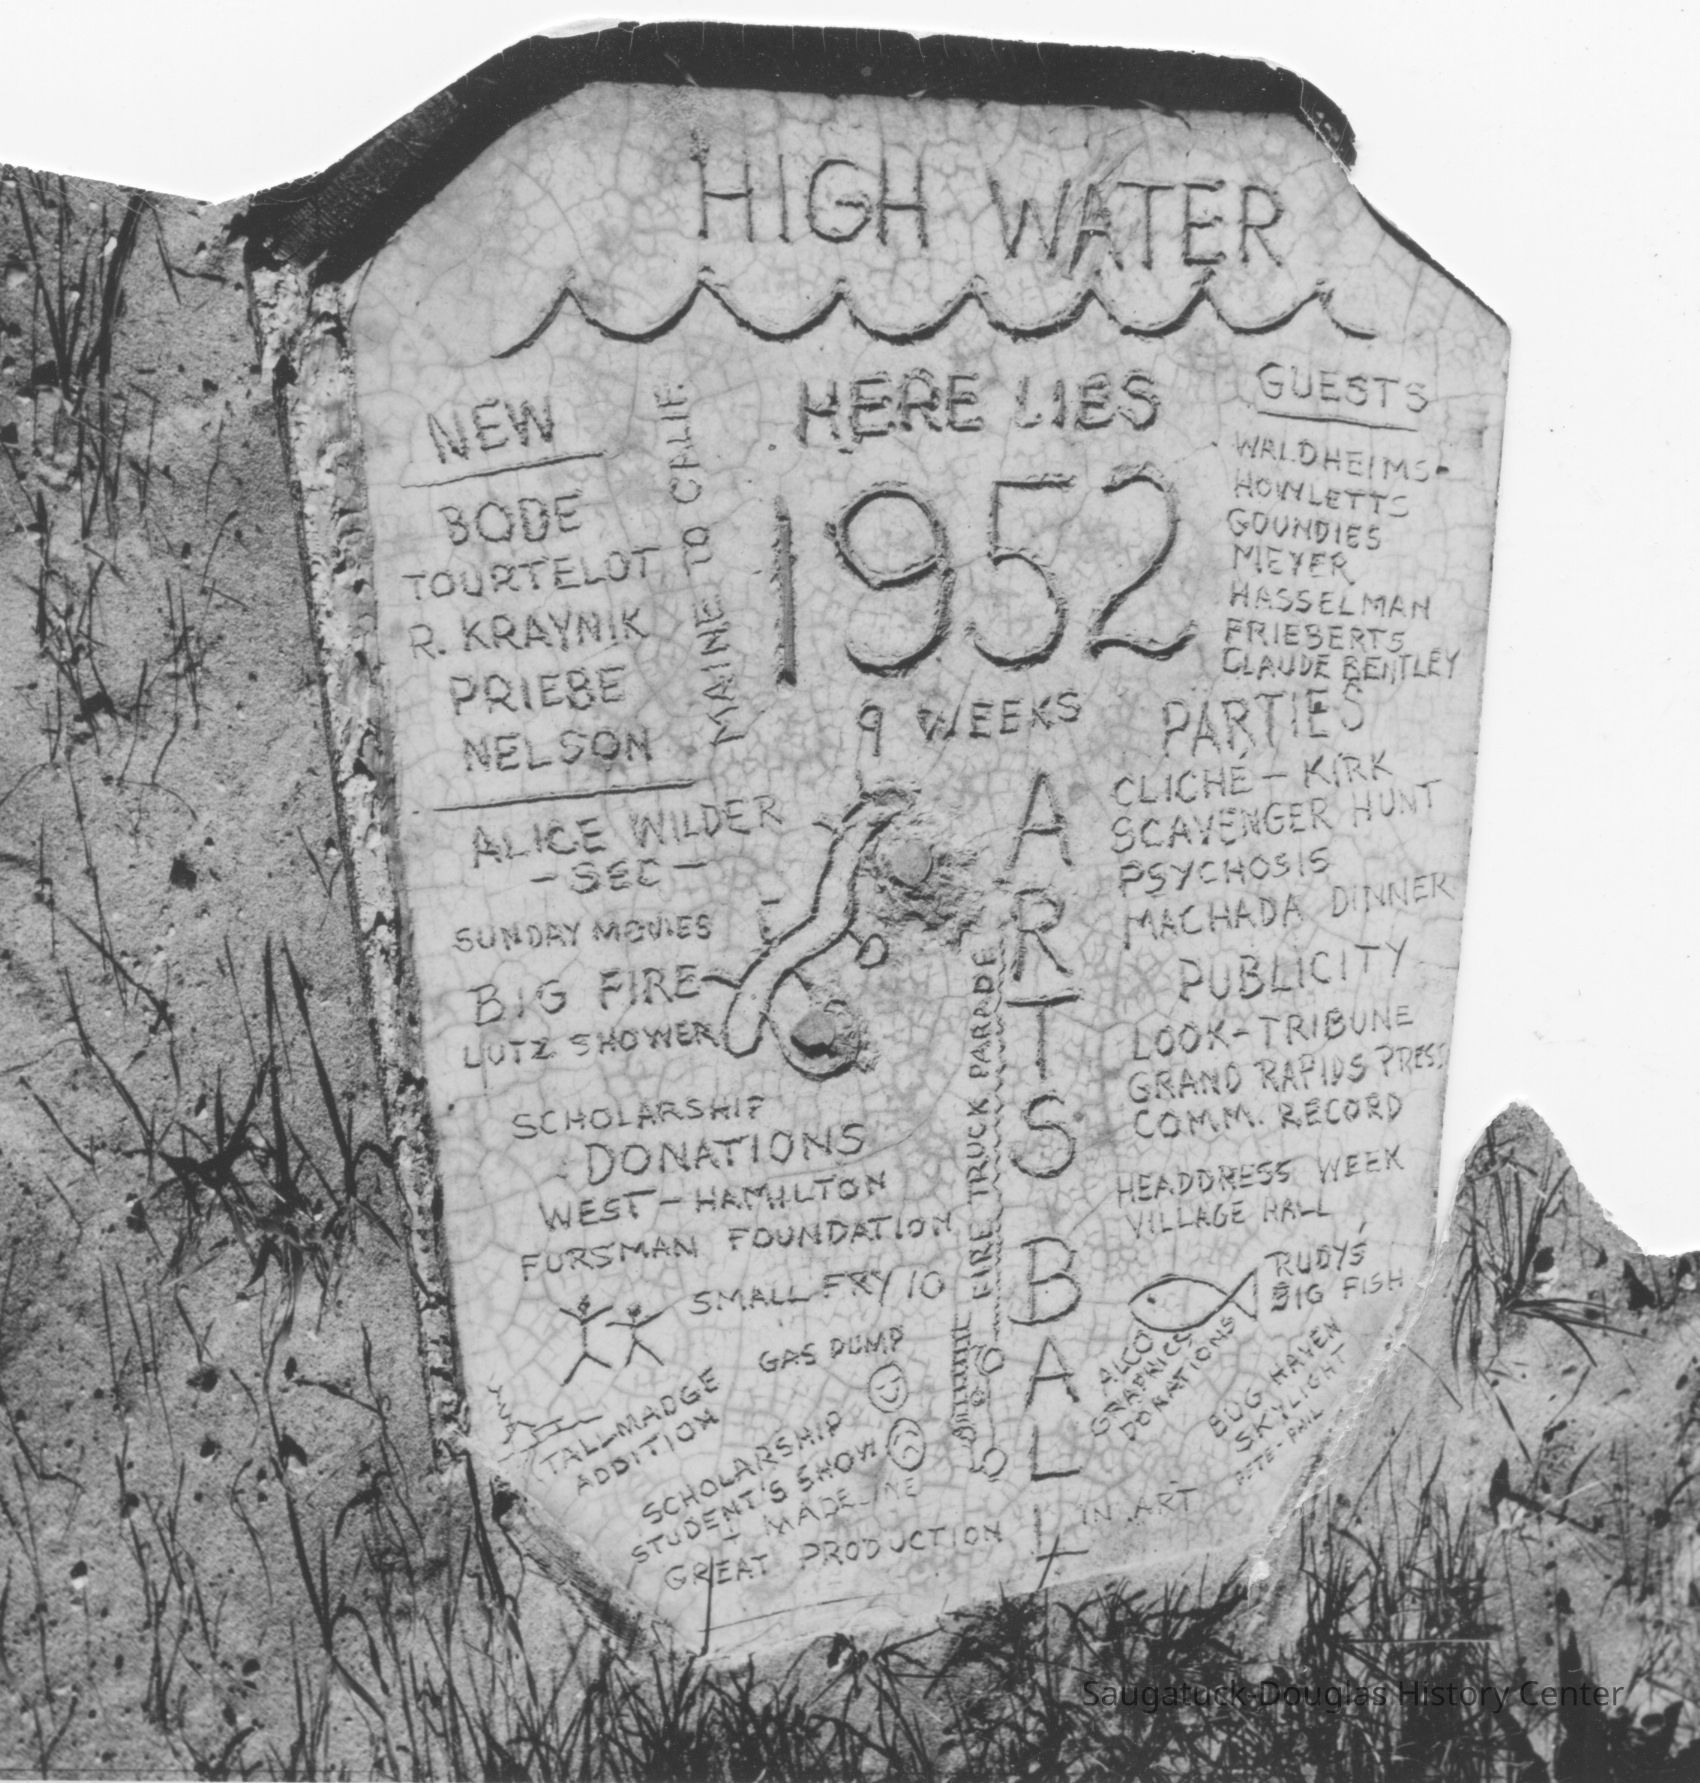 HIGH WATER
HERE LIES
1952
9 WEEKS
ARTS BALL
NEW
BODE
TOURTELOT
R. KRAYNIK
PRIEBE
NELSON
MAINE TO CALIF
ALICE WILDER
-SEC-
SUNDAY MOVIES
BIG FIRE
LUTZ SHOWER
SCHOLARSHIP
DONATIONS
WEST-HAMILTON
FURSMAN FOUNDATION
SMALL FRY 10
GAS PUMP
TALLMADGE
ADDITION
SCHOLARSHIP
STUDENT'S SHOW
+ MADELINE
GREAT PRODUCTION
FIRE TRUCK PARADE
GUESTS
WALDHEIMS-
HOWLETTS
GOUNDIES
MEYER
HASSELMAN
FRIEBERTS
CLAUDE BENTLEY
PARTIES
CLICHE - KIRK
SCAVENGER HUNT
PSYCHOSIS
MACHADA DINNER
PUBLICITY
LOOK-TRIBUNE
GRAND RAPIDS PRESS
COMM. RECORD
HEADDRESS WEEK
VILLAGE HALL
RUDYS'
BIG FISH
ALCO
GRAPHICS
DONATIONS
BUG HAVEN
SKYLIGHT
PETE-PHIL
IN ART
Saugatuck-Douglas History Center